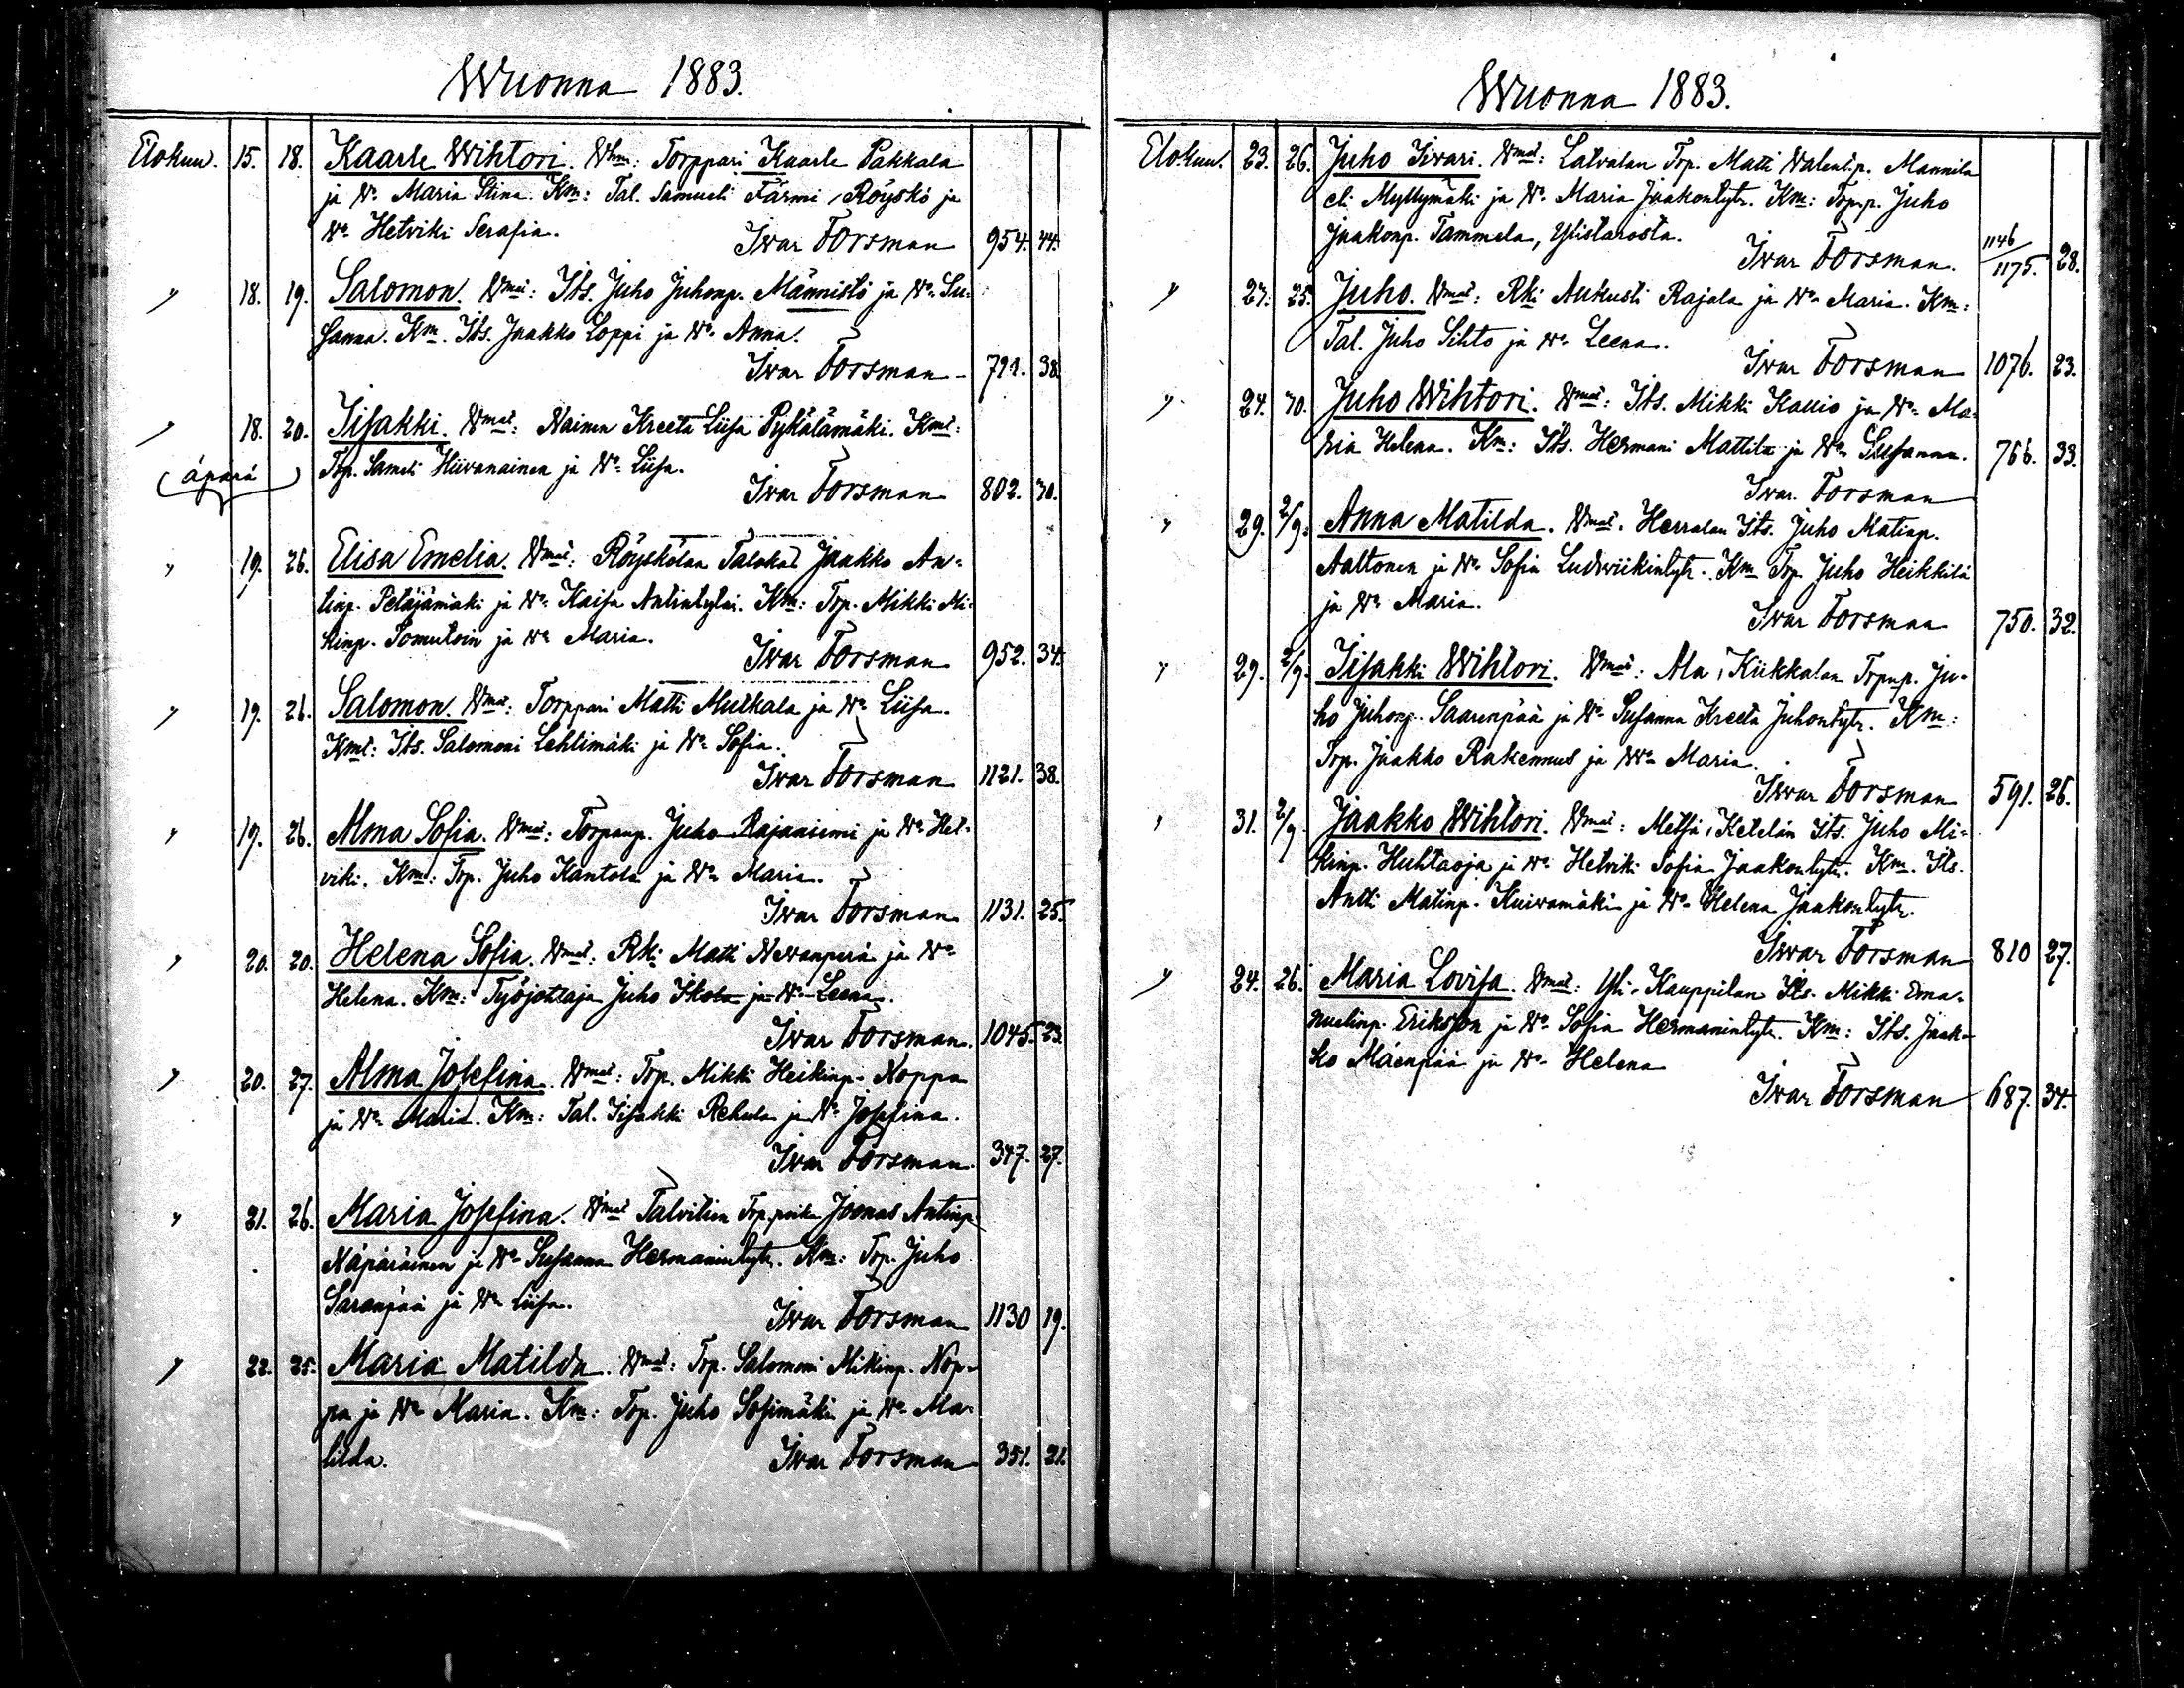 Wuonna 1883.
Elokuu. 15. 18. Kaarle Wihtori. Whm: Torppari Kaarle Pakkala
ja Wo Maria Stina. Km: Tal. Samueli Färmi, Röyskö ja
Wo Hetviki Serafia. Ivar Forsman 954. 44.
" 18. 19. Salomon. Wmat: Its. Juho Juhonp. Männistö ja Wo Su-
sanna. Km. Its. Jaakko Loppi ja Wo Anna.
Ivar Forsman 38.
" 18. 20. Iisakki. Wmat: Nainen Kreeta Liisa Pykälämäki. Kmt:
(äpärä) Trp. Sameli Hiivanainen ja Wo Liisa.
Ivar Forsman 802. 30.
" 19. 26. Elisa Emelia. Wmat: Röyskölän Talokas Jaakko An-
tinp. Petäjämäki ja Wo Kaisa Antintytär. Km: Trp. Mikki Mi-
kinp. ja Wo Maria. Ivar Forsman 952. 34.
" 19. 26. Salomon. Wmat: Torppari Matti Mulkala ja Wo Liisa.
Kmt: Its. Salomoni Lehtimäki ja Wo Sofia.
Ivar Forsman 1121. 38.
" 19. 26. Alma Sofia. Wmat: Torpanp. Juho Rajaniemi ja Wo Het-
viki. Km: Trp. Juho Kantola ja Wo Maria.
Ivar Forsman 1131. 25.
" 20. 20. Helena Sofia. Wmat: Rki Matti Nevanperä ja Wo
Helena. Km: Työjohtaja Juho Ikola ja Wo Leena.
Ivar Forsman. 1045. 23.
" 20. 27. Alma Josefina. Wmat: Trp. Mikki Heikinp. Noppa
ja Wo Maria. Km: Tal. Iisakki Rehula ja Wo Josefina.
Ivar Forsman. 347. 27.
" 21. 26. Maria Josefina. Wmat Talvitien Trp.poika Joonas Antinp.
Näpäräinen ja Wo Susanna Hermanintytr. Km: Trp. Juho
Saranpää ja Wo Liisa. Ivar Forsman 1130 19.
" 22. 25. Maria Matilda. Wmat: Trp. Salomoni Mikinp. Nop-
pa ja Wo Maria. Km: Trp. Juho ja Wo Ma-
tilda. Ivar Forsman 351. 21.
Wuonna 1883.
Elokuu. 23. 26. Juho Iivari. Wmat: Latvalan Trp. Matti Valent.p. Mannila
eli Myllymäki ja Wo Maria Jaakontytr. Km: Trp.p. Juho
Jaakonp. Tammela, Ylistarosta. Ivar Forsman. 1146/1175. 28.
" 25. Juho. Wmat: Rki Aukusti Rajala ja Wo Maria. Km:
Tal. Juho Sihto ja Wo Leena.
Ivar Forsman 1076. 23.
" 24. 30. Juho Wihtori. Wmat: Its. Mikki Kallio ja Wo Ma-
ria Helena. Km: Its. Hermani Mattila ja Wo Susanna. 766. 33.
Ivar. Forsman
" 29. 2/9. Anna Matilda. Wmat. Herralan Its. Juho Matinp.
Aaltonen ja Wo Sofia Ludviikintytr. Km Trp. Juho Heikkilä
ja Wo Maria. Ivar Forsman 750. 32.
" 29. 2/9. Iisakki Wihtori. Wmat: Ala, Kiikkalan Trpnp. Ju-
ho Juhonp. Saarenpää ja Wo Susanna Kreeta Juhontytr. Km:
Trp. Jaakko Rakennus ja Wo Maria.
Ivar Forsman 591. 26.
" 31. 2/9. Jaakko Wihtori. Wmat: Metsä, Ketelän Its. Juho Mi-
kinp. Huhtaoja ja Wo Hetviki Sofia Jaakontytr. Km. Its.
Antti Matinp. Kuivamäki ja Wo Helena Jaakontytr.
Ivar Forsman 810 27.
" 24. 26. Maria Lovisa. Wmat: Yli-Kauppilan Its. Mikki Ema-
nuelinp. Eriksson ja Wo Sofia Hermanintytr. Km: Its. Jaak-
ko Mäenpää ja Wo Helena
Ivar Forsman 687. 34.